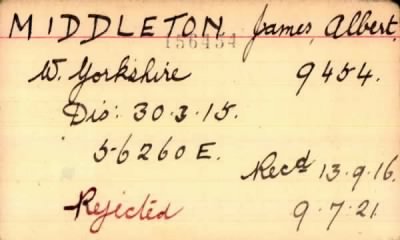 MIDDLETON, James, Albert.
156454
W. Yorkshire 9454.
Dis: 30.3.15.
56260E.
Recd 13.9.16.
Rejected 9.7.21